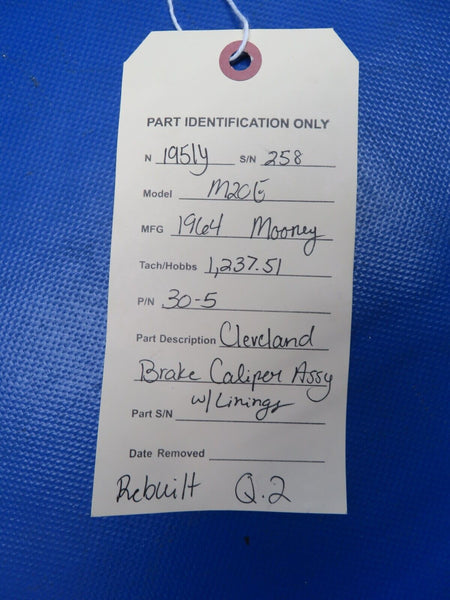 PART IDENTIFICATION ONLY
N 1951Y S/N 258
Model M20E
MFG 1964 Mooney
Tach/Hobbs 1,237.51
P/N 30-5
Part Description Cleveland
Brake Caliper Assy
w/ Linings
Part S/N
Date Removed
Rebuilt Q.2